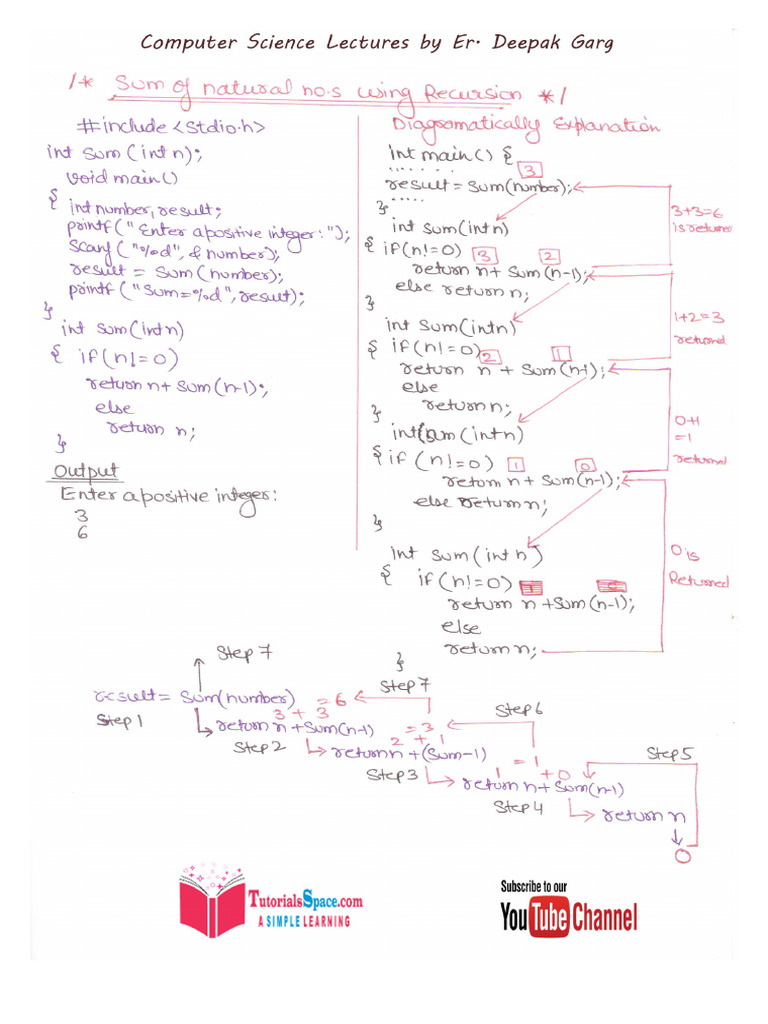 Computer Science Lectures by Er. Deepak Garg
/* Sum of natural no.s using Recursion */
#include <stdio.h>
int sum (int n);
void main()
{ int number, result;
printf("Enter a positive integer:");
scanf ("%d", & number);
result = sum (number);
printf ("Sum=%d", result);
}
int sum (int n)
{ if (n!=0)
return n + sum (n-1);
else
return n;
}
Output
Enter a positive integer:
3
6
Diagramatically Explanation
int main() {
.......
3
result = sum(number);
.....
}
3+3=6
is returned
int sum (int n)
{ if (n!=0) 3 2
return n + sum (n-1);
else return n;
}
1+2=3
returned
int sum (int n)
{ if (n!=0) 2 1
return n + sum (n-1);
else
return n;
}
0+1
=1
returned
int sum (int n)
{ if (n!=0) 1 0
return n + sum (n-1);
else return n;
}
0 is
Returned
int sum (int n)
{ if (n!=0)
return n + sum (n-1);
else
return n;
}
Step 7
Step 7
result = sum (number) = 6
Step 1
3 + 3
return n + sum (n-1) = 3
Step 6
Step 2
2 + 1
return n + (sum-1) = 1
Step 5
Step 3
1 + 0
return n + sum (n-1)
Step 4
return n
0
TutorialsSpace.com
A SIMPLE LEARNING
Subscribe to our
YouTube Channel